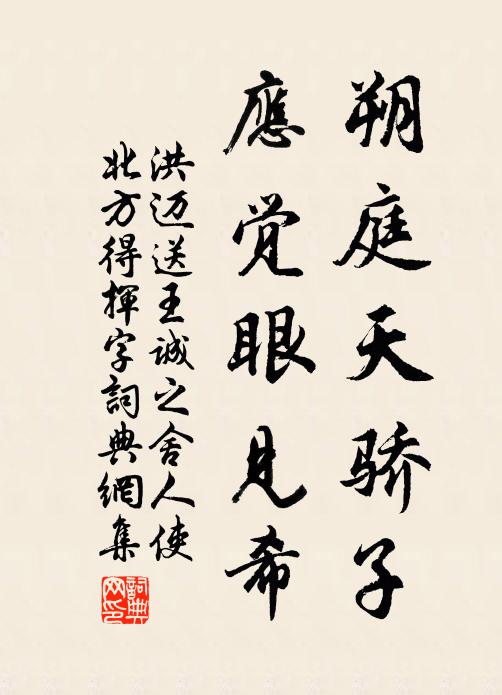 朔庭天骄子
應觉眼見希
洪迈送王诚之舍人使
北方得揮字詞典網集